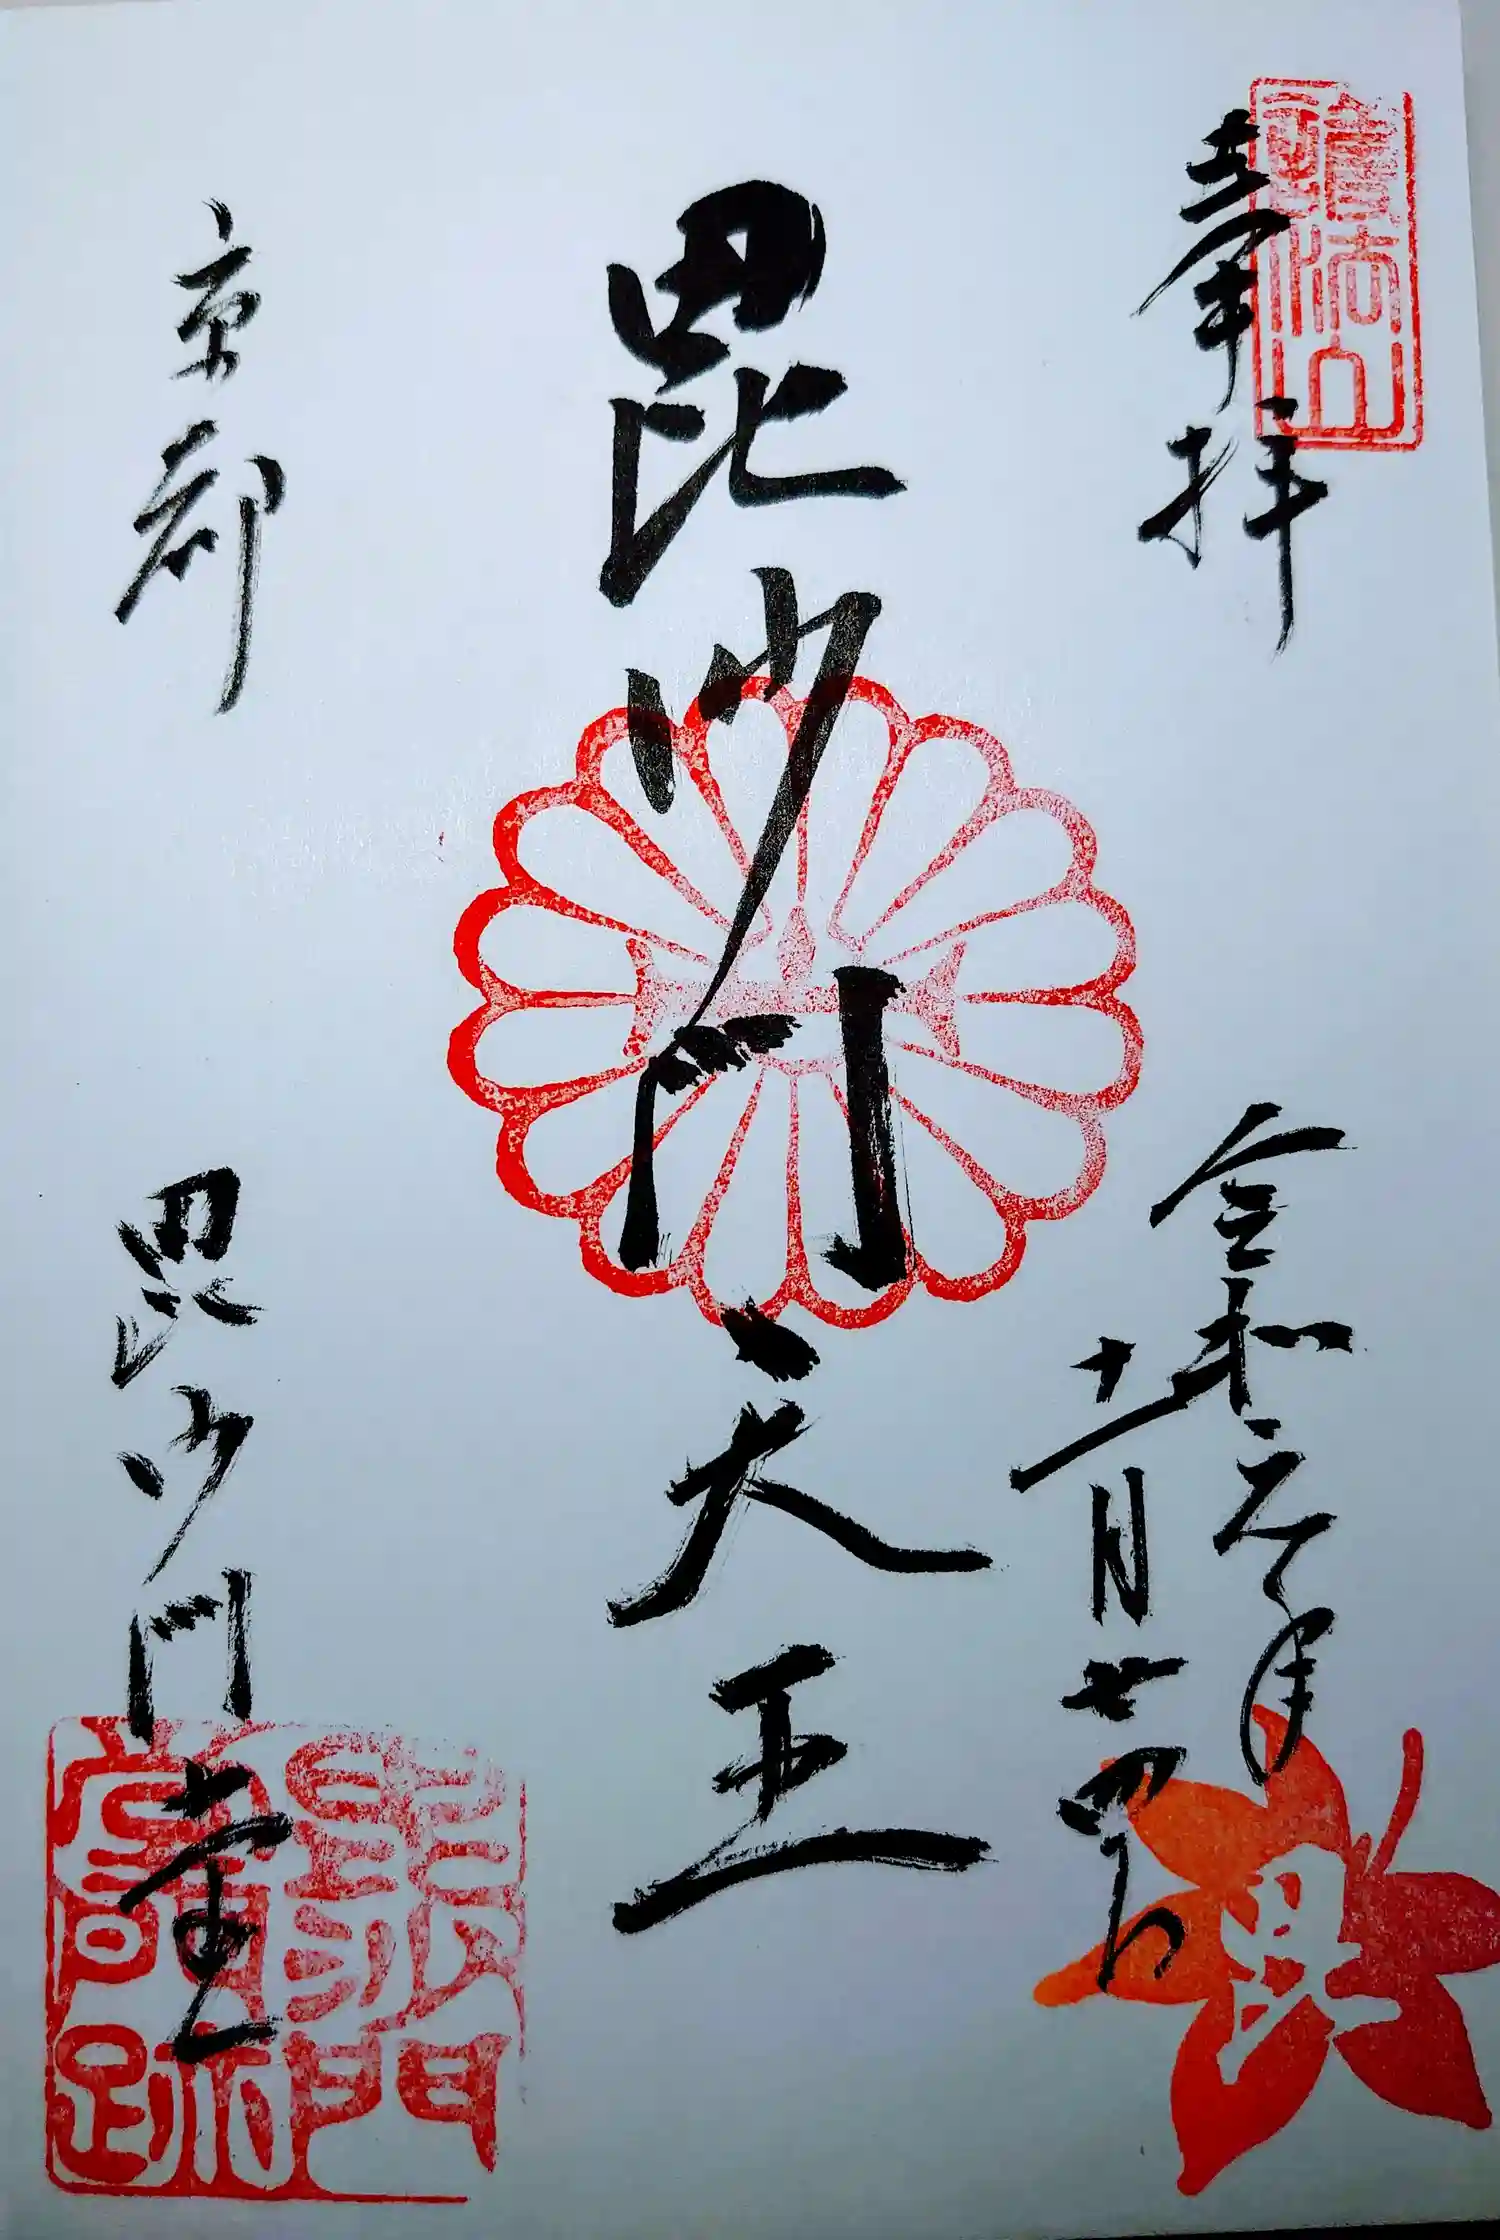 奉拝
護法山
令和元年
十一月廿四日
毘沙門天王
京都
毘沙門堂
毘沙門
堂門跡
毘